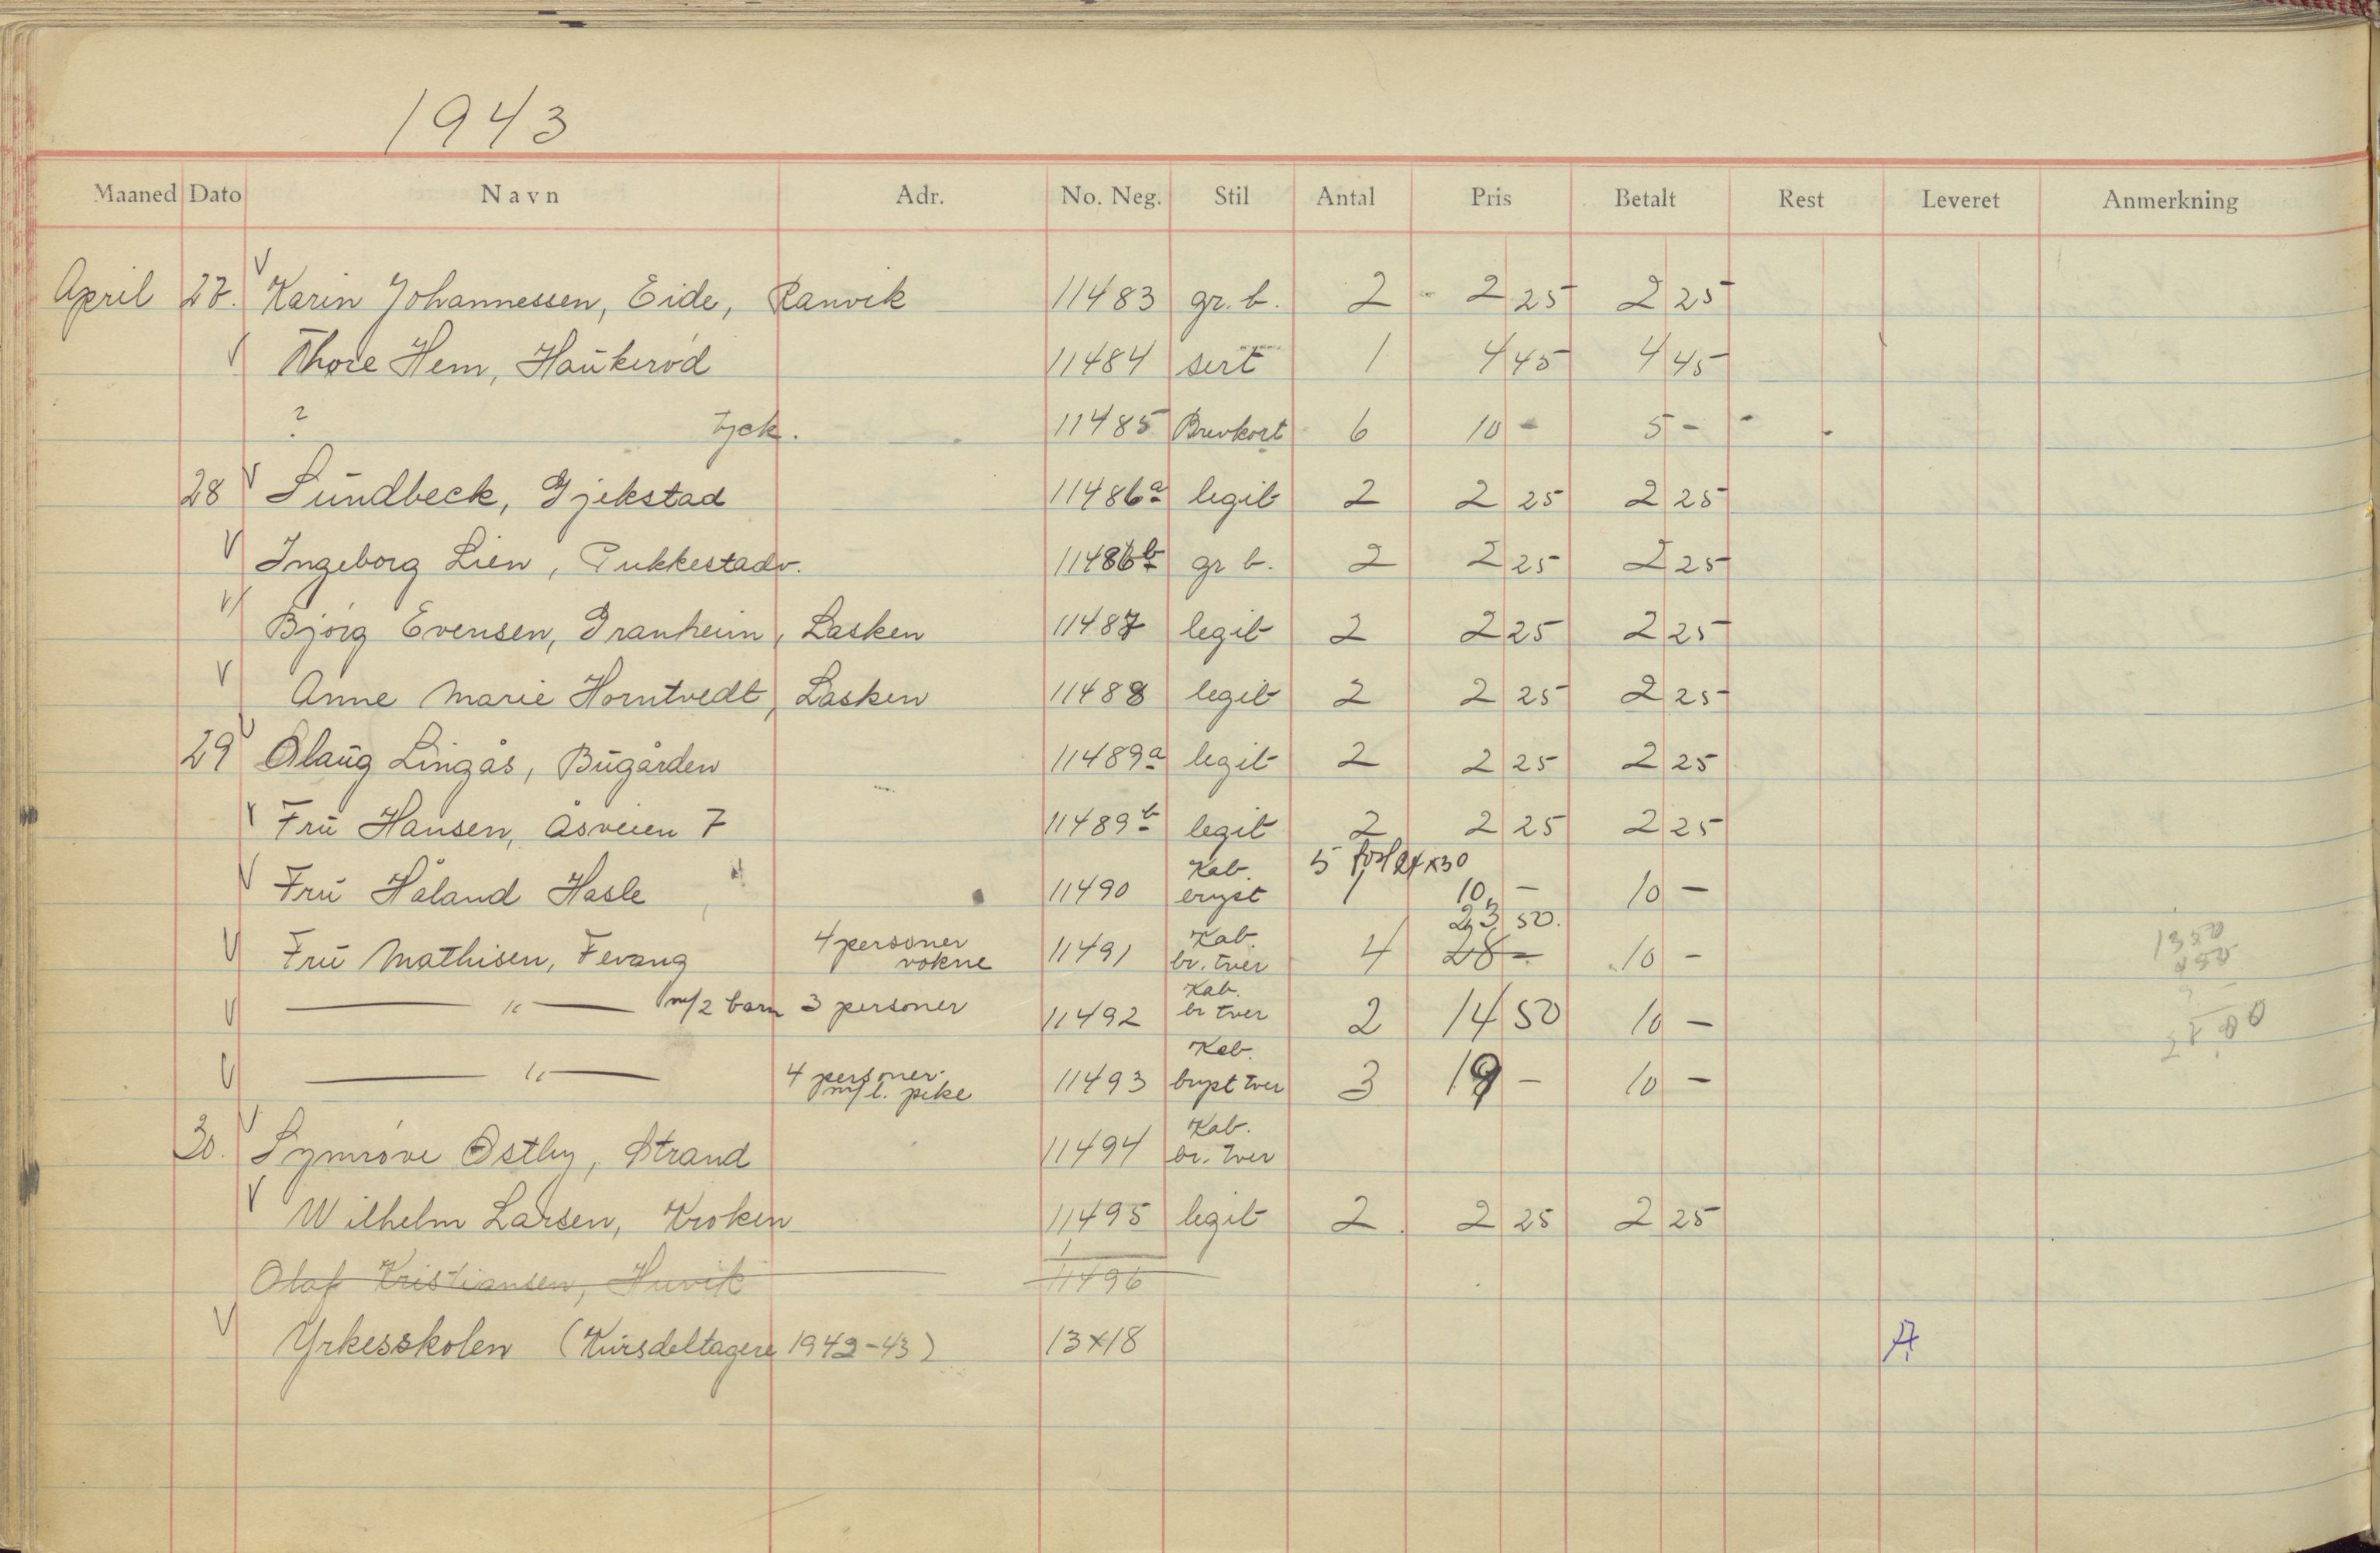 1943
Maaned Dato Navn Adr. No. Neg. Stil Antal Pris Betalt Rest Leveret Anmerkning
April 27. V Karin Johannessen, Eide, Ranvik 11483 gr. b. 2 2 25 2 25
V Thore Hem, Haukerød 11484 sert 1 4 45 4 45
? tysk. 11485 Brevkort 6 10 - 5 -
28 V Sundbeck, Gjekstad 11486a legit 2 2 25 2 25
V Ingeborg Lien, Pukkestadv. 11486b gr b. 2 2 25 2 25
V Bjørg Evensen, Granheim, Lasken 11487 legit 2 2 25 2 25
V Anne Marie Horntvedt, Lasken 11488 legit 2 2 25 2 25
29 V Olaug Lingås, Bugården 11489a legit 2 2 25 2 25
V Fru Hansen, Åsveien 7 11489b legit 2 2 25 2 25
V Fru Håland Hasle 11490 Kab. 5 24x30 1 10 - 10 -
V Fru Mathisen, Fevang 4 personer voksne 11491 Kab. br. tver 4 23 50. 28 - 10 -
V — " — m/2 barn 3 personer 11492 Kab. br tver 2 14 50 10 -
V — " — 4 personer m/l. pike 11493 Kab. brpt tver 3 19 - 10 -
30. V Synnøve Østby, Strand 11494 Kab. br. tver
V Wilhelm Larsen, Kroken 11495 legit 2. 2 25 2 25
Olaf Kristiansen, Huvik 11496
V Yrkesskolen (Kursdeltagere 1942-43) 13x18 A